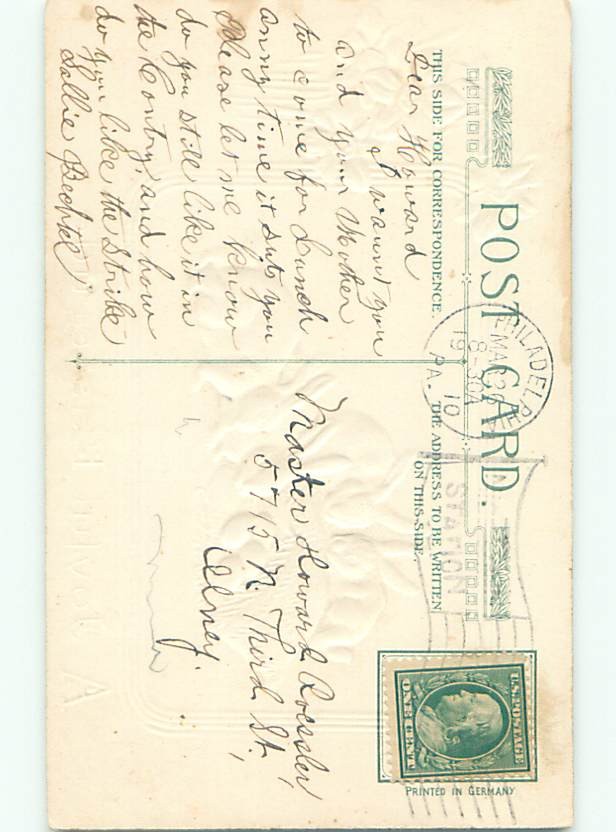 POST CARD.
THIS SIDE FOR CORRESPONDENCE.
THE ADDRESS TO BE WRITTEN
ON THIS SIDE.
Dear Howard
I waunt you
and your Mother
to come for Lunch
anny time it suts you
Please let me know
do you still like it in
the Contry, and how
do you like the Strike
Sallie Bechtel
PHILADELPHIA
MAR 29
8-30A
1910
PA.
STATION
U.S. POSTAGE
ONE CENT
Master Howard Roessler,
5715 N. Third St,
Olney.
PRINTED IN GERMANY